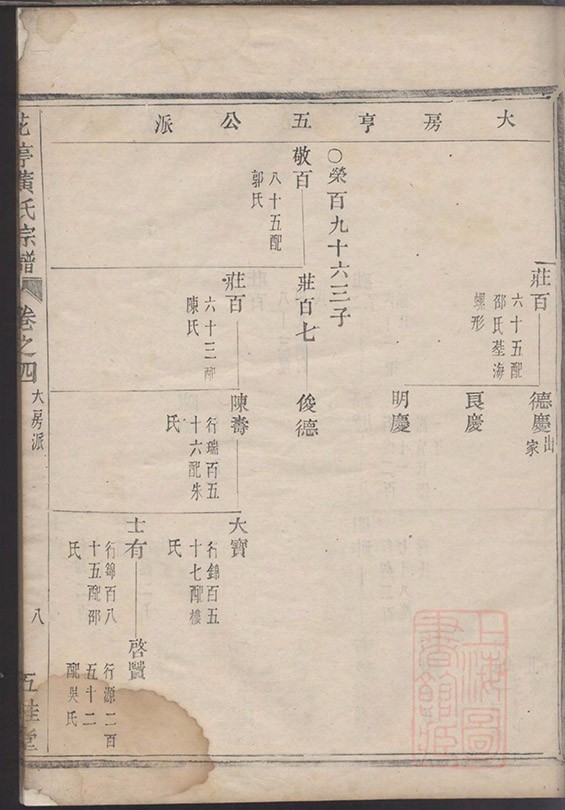 大房亨五公派
莊百
六十五配
邵氏塟海
螺形
德慶出
家
良慶
明慶
○榮百九十六三子
敬百
八十五配
郭氏
莊百七
俊德
莊百
六十三配
陳氏
陳壽
行瑞百五
十六配朱
氏
大寶
行錦百五
十七配樓
氏
士有
行錦百八
十五配邵
氏
啓賢
行源二百
五十二
配吳氏
亭黃氏宗譜
卷之四
大房派
八
五桂堂
上海圖
書館藏